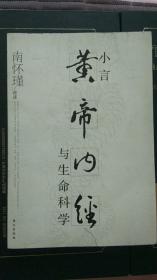 南怀瑾 讲述
小言
黄帝内经
与生命科学